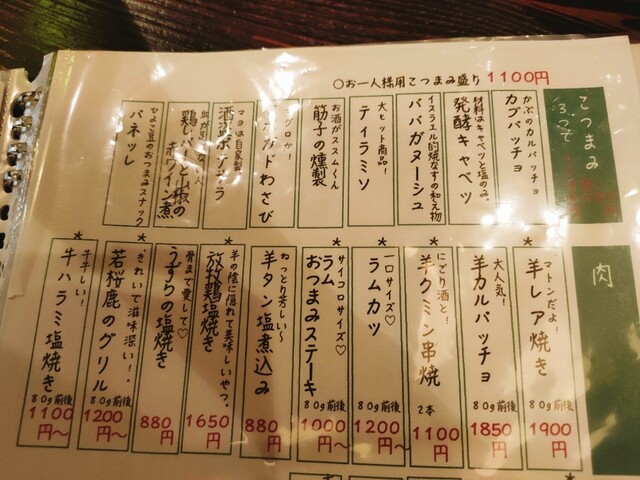 ○お一人様用こつまみ盛り 1100円
こつまみ
かぶのカルパッチョ
カブパッチョ
材料はキャベツと塩のみ。
発酵キャベツ
イスラエル的焼なすの和え物
ババガヌーシュ
大ヒット商品!
ティラミソ
お酒がススムくん
筋子の燻製
わさび
マヨは自家製
鶏レバーと山椒の
赤ワイン煮
ひよこ豆のおつまみスナック
パネッレ
肉
マトンだよ!
羊レア焼き
80g前後
1900円
大人気!
羊カルパッチョ
80g前後
1850円
にごり酒と!
羊クミン串焼
2本
1100円
一口サイズ♡
ラムカツ
80g前後
1200円〜
サイコロサイズ♡
ラム
おつまみステーキ
80g前後
1000円〜
ねっとり芳しい〜
羊タン塩煮込み
880円
羊の陰に隠れて美味しいやつ。
放牧鶏塩焼き
1650円
骨まで愛して♡
うずらの塩焼き
880円
きれいで滋味深い!
若桜鹿のグリル
80g前後
1200円〜
牛ハラミ塩焼き
80g前後
1100円〜